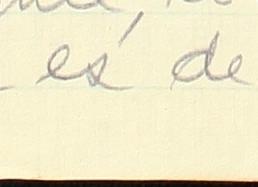 es de